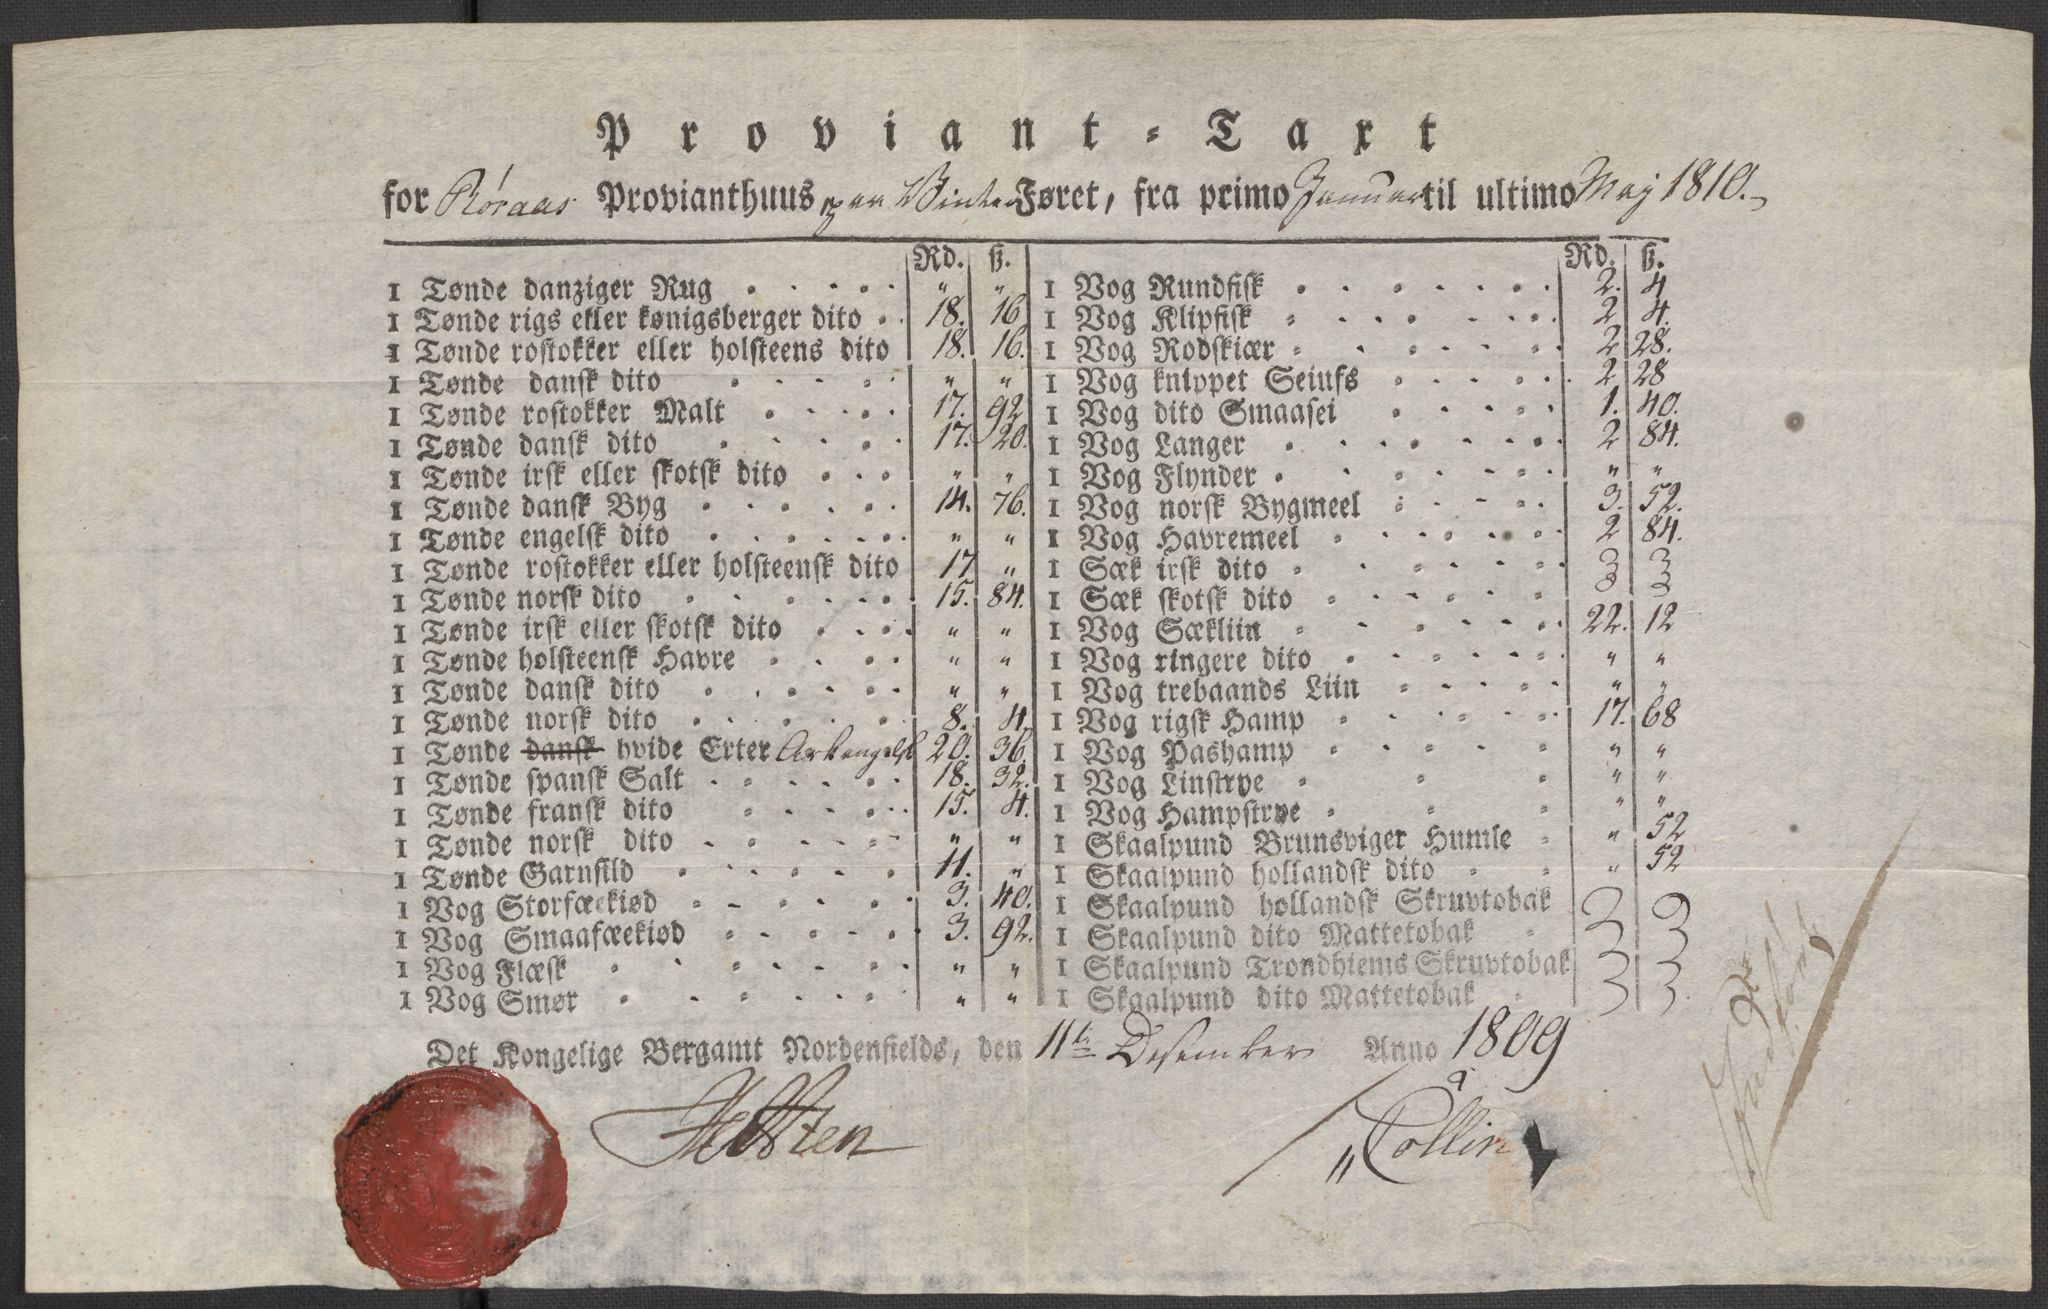 Proviant-Taxt
for Røraas Provianthuus paa Vinter Føret, fra primo Januar til ultimo May 1810.
Rd. ß.
1 Tønde danziger Rug . . . . . " "
1 Tønde rigs eller kønigsberger dito . . 18. 16
1 Tønde rostokker eller holsteens dito 18. 16.
1 Tønde dansk dito . . . . . " "
1 Tønde rostokker Malt . . . . 17. 92
1 Tønde dansk dito . . . . . 17. 20.
1 Tønde irsk eller skotsk dito . . . " "
1 Tønde dansk Byg . . . . . 14. 76.
1 Tønde engelsk dito . . . . . " "
1 Tønde rostokker eller holsteensk dito 17 "
1 Tønde norsk dito . . . . . 15. 84.
1 Tønde irsk eller skotsk dito . . . . " "
1 Tønde holsteensk Havre . . . . " "
1 Tønde dansk dito . . . . . " "
1 Tønde norsk dito . . . . . 8. 4.
1 Tønde dansk hvide Erter Arkangelsk 20. 36.
1 Tønde spansk Salt . . . . . 18. 32.
1 Tønde fransk dito . . . . . 15. 4.
1 Tønde norsk dito . . . . . " "
1 Tønde Garnsild . . . . . 11. "
1 Vog Storfæekiød . . . . . 3. 40.
1 Vog Smaafæekiød . . . . . 3. 92.
1 Vog Flæsk . . . . . " "
1 Vog Smør . . . . . " "
Rd. ß.
1 Vog Rundfisk . . . . . 2. 4
1 Vog Klipfisk . . . . . 2 4.
1 Vog Rodskiær . . . . . 2 28.
1 Vog knippet Seiufs . . . . . 2 28
1 Vog dito Smaasei . . . . . 1. 40.
1 Vog Langer . . . . . 2 84.
1 Vog Flynder . . . . . " "
1 Vog norsk Bygmeel . . . . . 3. 52.
1 Vog Havremeel . . . . . 2 84.
1 Sæk irsk dito . . . . .
1 Sæk skotsk dito . . . . .
1 Vog Sækliin . . . . . 22. 12
1 Vog ringere dito . . . . . " "
1 Vog trebaands Liin . . . . . " "
1 Vog rigsk Hamp . . . . . 17. 68
1 Vog Pashamp . . . . . " "
1 Vog Linstrye . . . " "
1 Vog Hampstrye . . . " "
1 Skaalpund Brunsviger Humle . " 52
1 Skaalpund hollandsk dito . . " 52
1 Skaalpund hollandsk Skruvtobak
1 Skaalpund dito Mattetobak .
1 Skaalpund Trondhiems Skruvtobak
1 Skaalpund dito Mattetobak .
Det Kongelige Bergamt Nordenfields, den 11te Desember Anno 1809
Collin